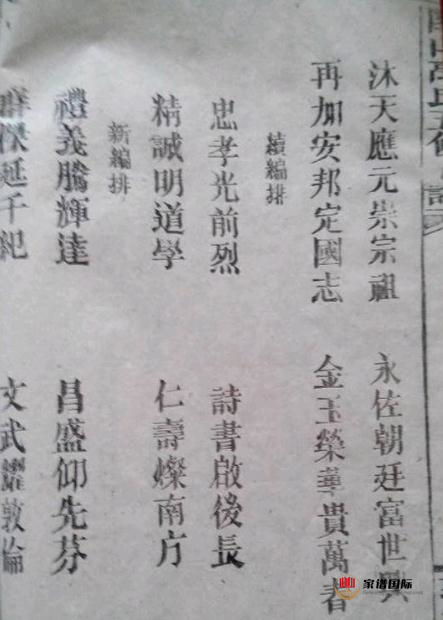 沐天應元崇宗祖 永佐朝廷富世興
再加安邦定國志 金玉榮華貴萬者
續編排
忠孝光前烈 詩書啟後長
精誠明道學 仁壽燦南方
新編排
禮義騰輝達 昌盛仰先芬
群傑延千紀 文武耀敦倫
家谱国际